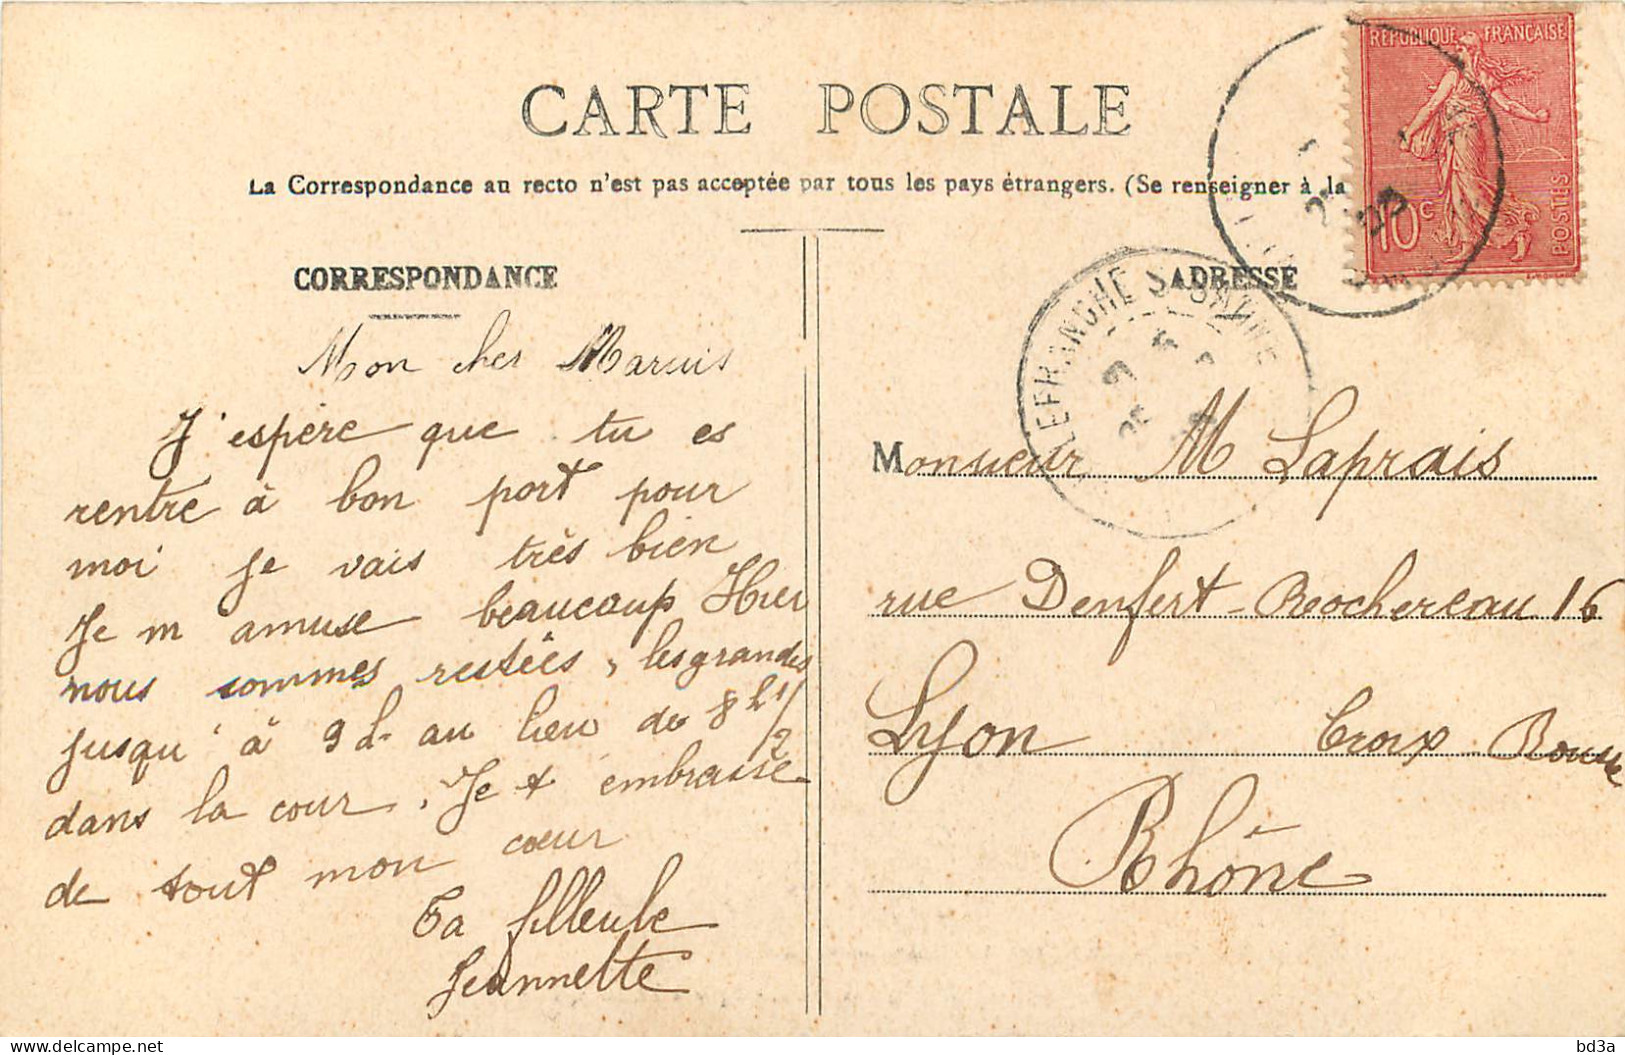 CARTE POSTALE
La Correspondance au recto n'est pas acceptée par tous les pays étrangers. (Se renseigner à la
RÉPUBLIQUE FRANÇAISE
10c
POSTES
CORRESPONDANCE
Mon cher Marius
J'espère que tu es
rentre à bon port pour
moi je vais très bien
Je m amuse beaucoup Hier
nous sommes restées, les grandes
jusqu'à 9 h. au lieu de 8 h 1/2
dans la cour. Je t embrasse
de tout mon coeur
Ta filleule
Jeannette
ADRESSE
LEFRANCHE S. SAONE
Monsieur M Laprais
rue Denfert-Rochereau 16
Lyon Croix Rousse
Rhône
bd3a
delcampe.net